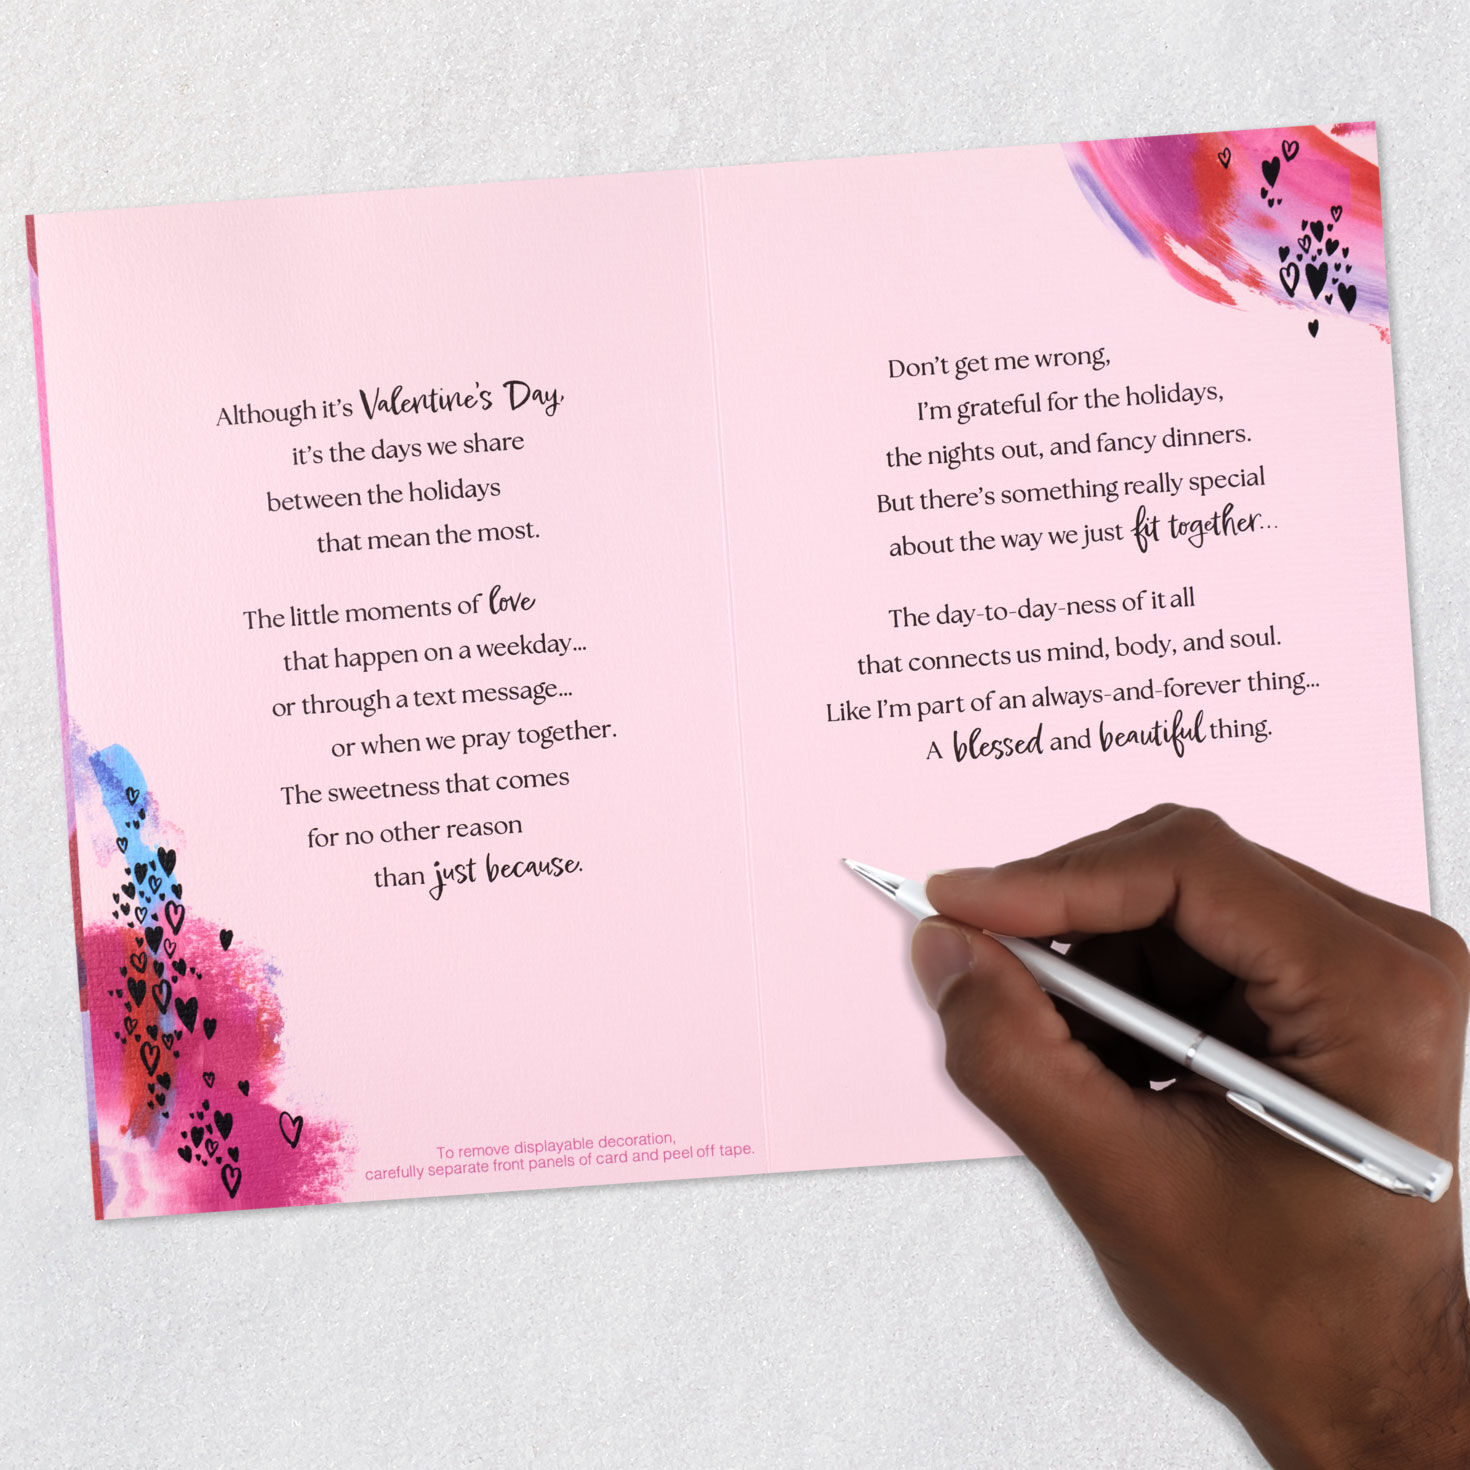 Although it's Valentine's Day,
it's the days we share
between the holidays
that mean the most.
The little moments of love
that happen on a weekday...
or through a text message...
or when we pray together.
The sweetness that comes
for no other reason
than just because.
To remove displayable decoration,
carefully separate front panels of card and peel off tape.
Don't get me wrong,
I'm grateful for the holidays,
the nights out, and fancy dinners.
But there's something really special
about the way we just fit together...
The day-to-day-ness of it all
that connects us mind, body, and soul.
Like I'm part of an always-and-forever thing...
A blessed and beautiful thing.